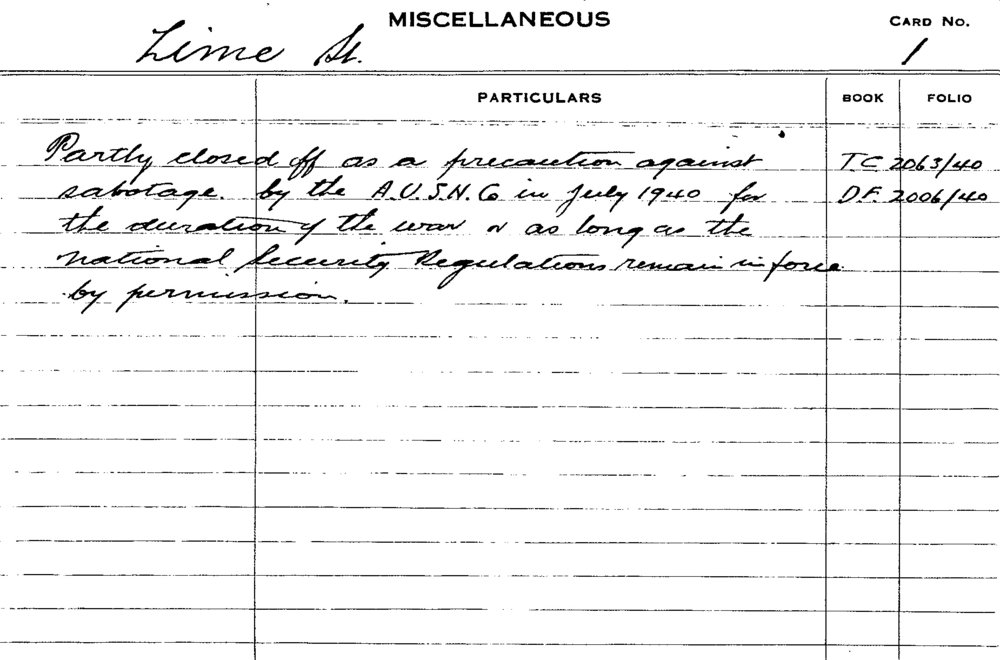 MISCELLANEOUS
CARD No.
Lime St.
1
PARTICULARS BOOK FOLIO
Partly closed off as a precaution against T.C 2063/40
sabotage. by the A.U.S.N. Co in July 1940 for D.F. 2006/40
the duration of the war or as long as the
National Security Regulations remain in force
by permission.